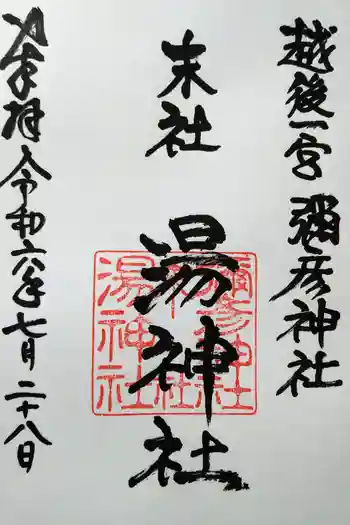 越後一宮 彌彦神社
末社
湯神社
奉拝 令和六年七月二十八日
彌彦神社
末社
湯神社